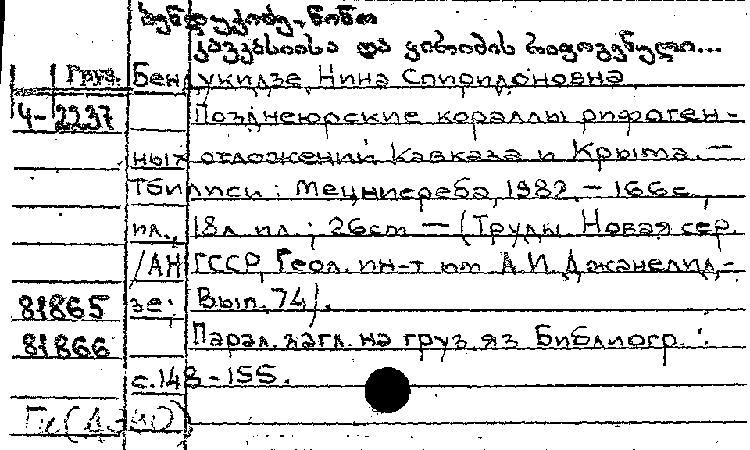 ბენდუქიძე, ნინო
კავკასიისა და ყირიმის რიფოგენული...
Груз. Бендукидзе, Нина Спиридоновна
4-2237 Позднеюрские кораллы рифоген-
ных отложений Кавказа и Крыма. —
Тбилиси: Мецниереба, 1982. — 166с.,
ил., 18л. ил.; 26см — (Труды. Новая сер.
/АН ГССР, Геол. ин-т им. А.И. Джанелид-
81865 зе; Вып. 74).
81866 Парал. загл. на груз. яз. Библиогр.:
с.148-155.